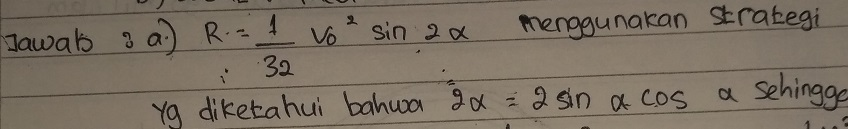 Jawab : a.) R = 1/32 v₀² sin 2α menggunakan strategi
yg diketahui bahwa 2α = 2 sin α cos α sehingga